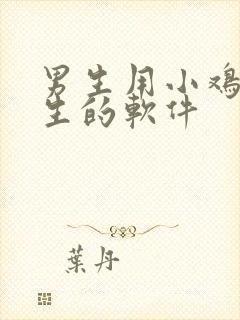 男生用小鸡
生的軟件
葉丹